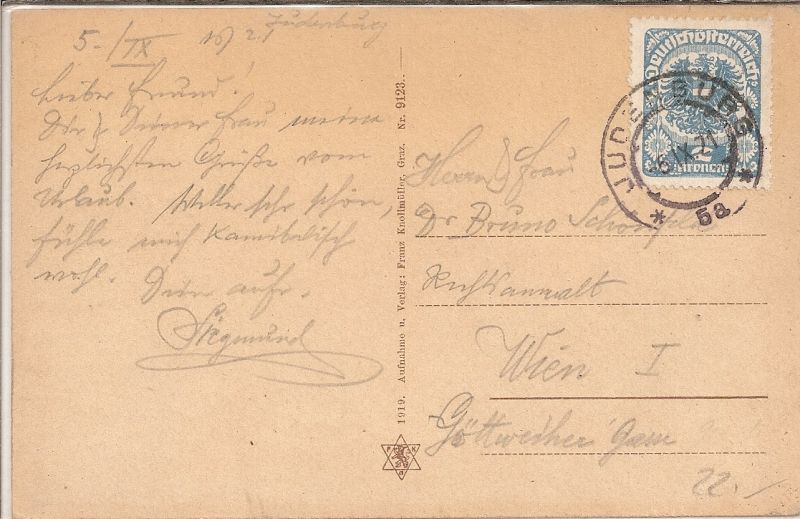 Judenburg
5./IX 1921
Lieber Freund!
Dir & Deiner Frau meine
herzlichsten Grüße vom
Urlaub. Wetter sehr schön,
fühle mich kannibalisch
wohl. Dein aufr.
Siegmund
1919. Aufnahme u. Verlag: Franz Knollmüller, Graz. Nr. 9123.
Deutschösterreich
2
Kronen
JUDENBURG
6.IX.21
* 5a *
Herrn & Frau
Dr Bruno Schönfeld
Rechtsanwalt
Wien I
Göttweiher Gasse
22.-